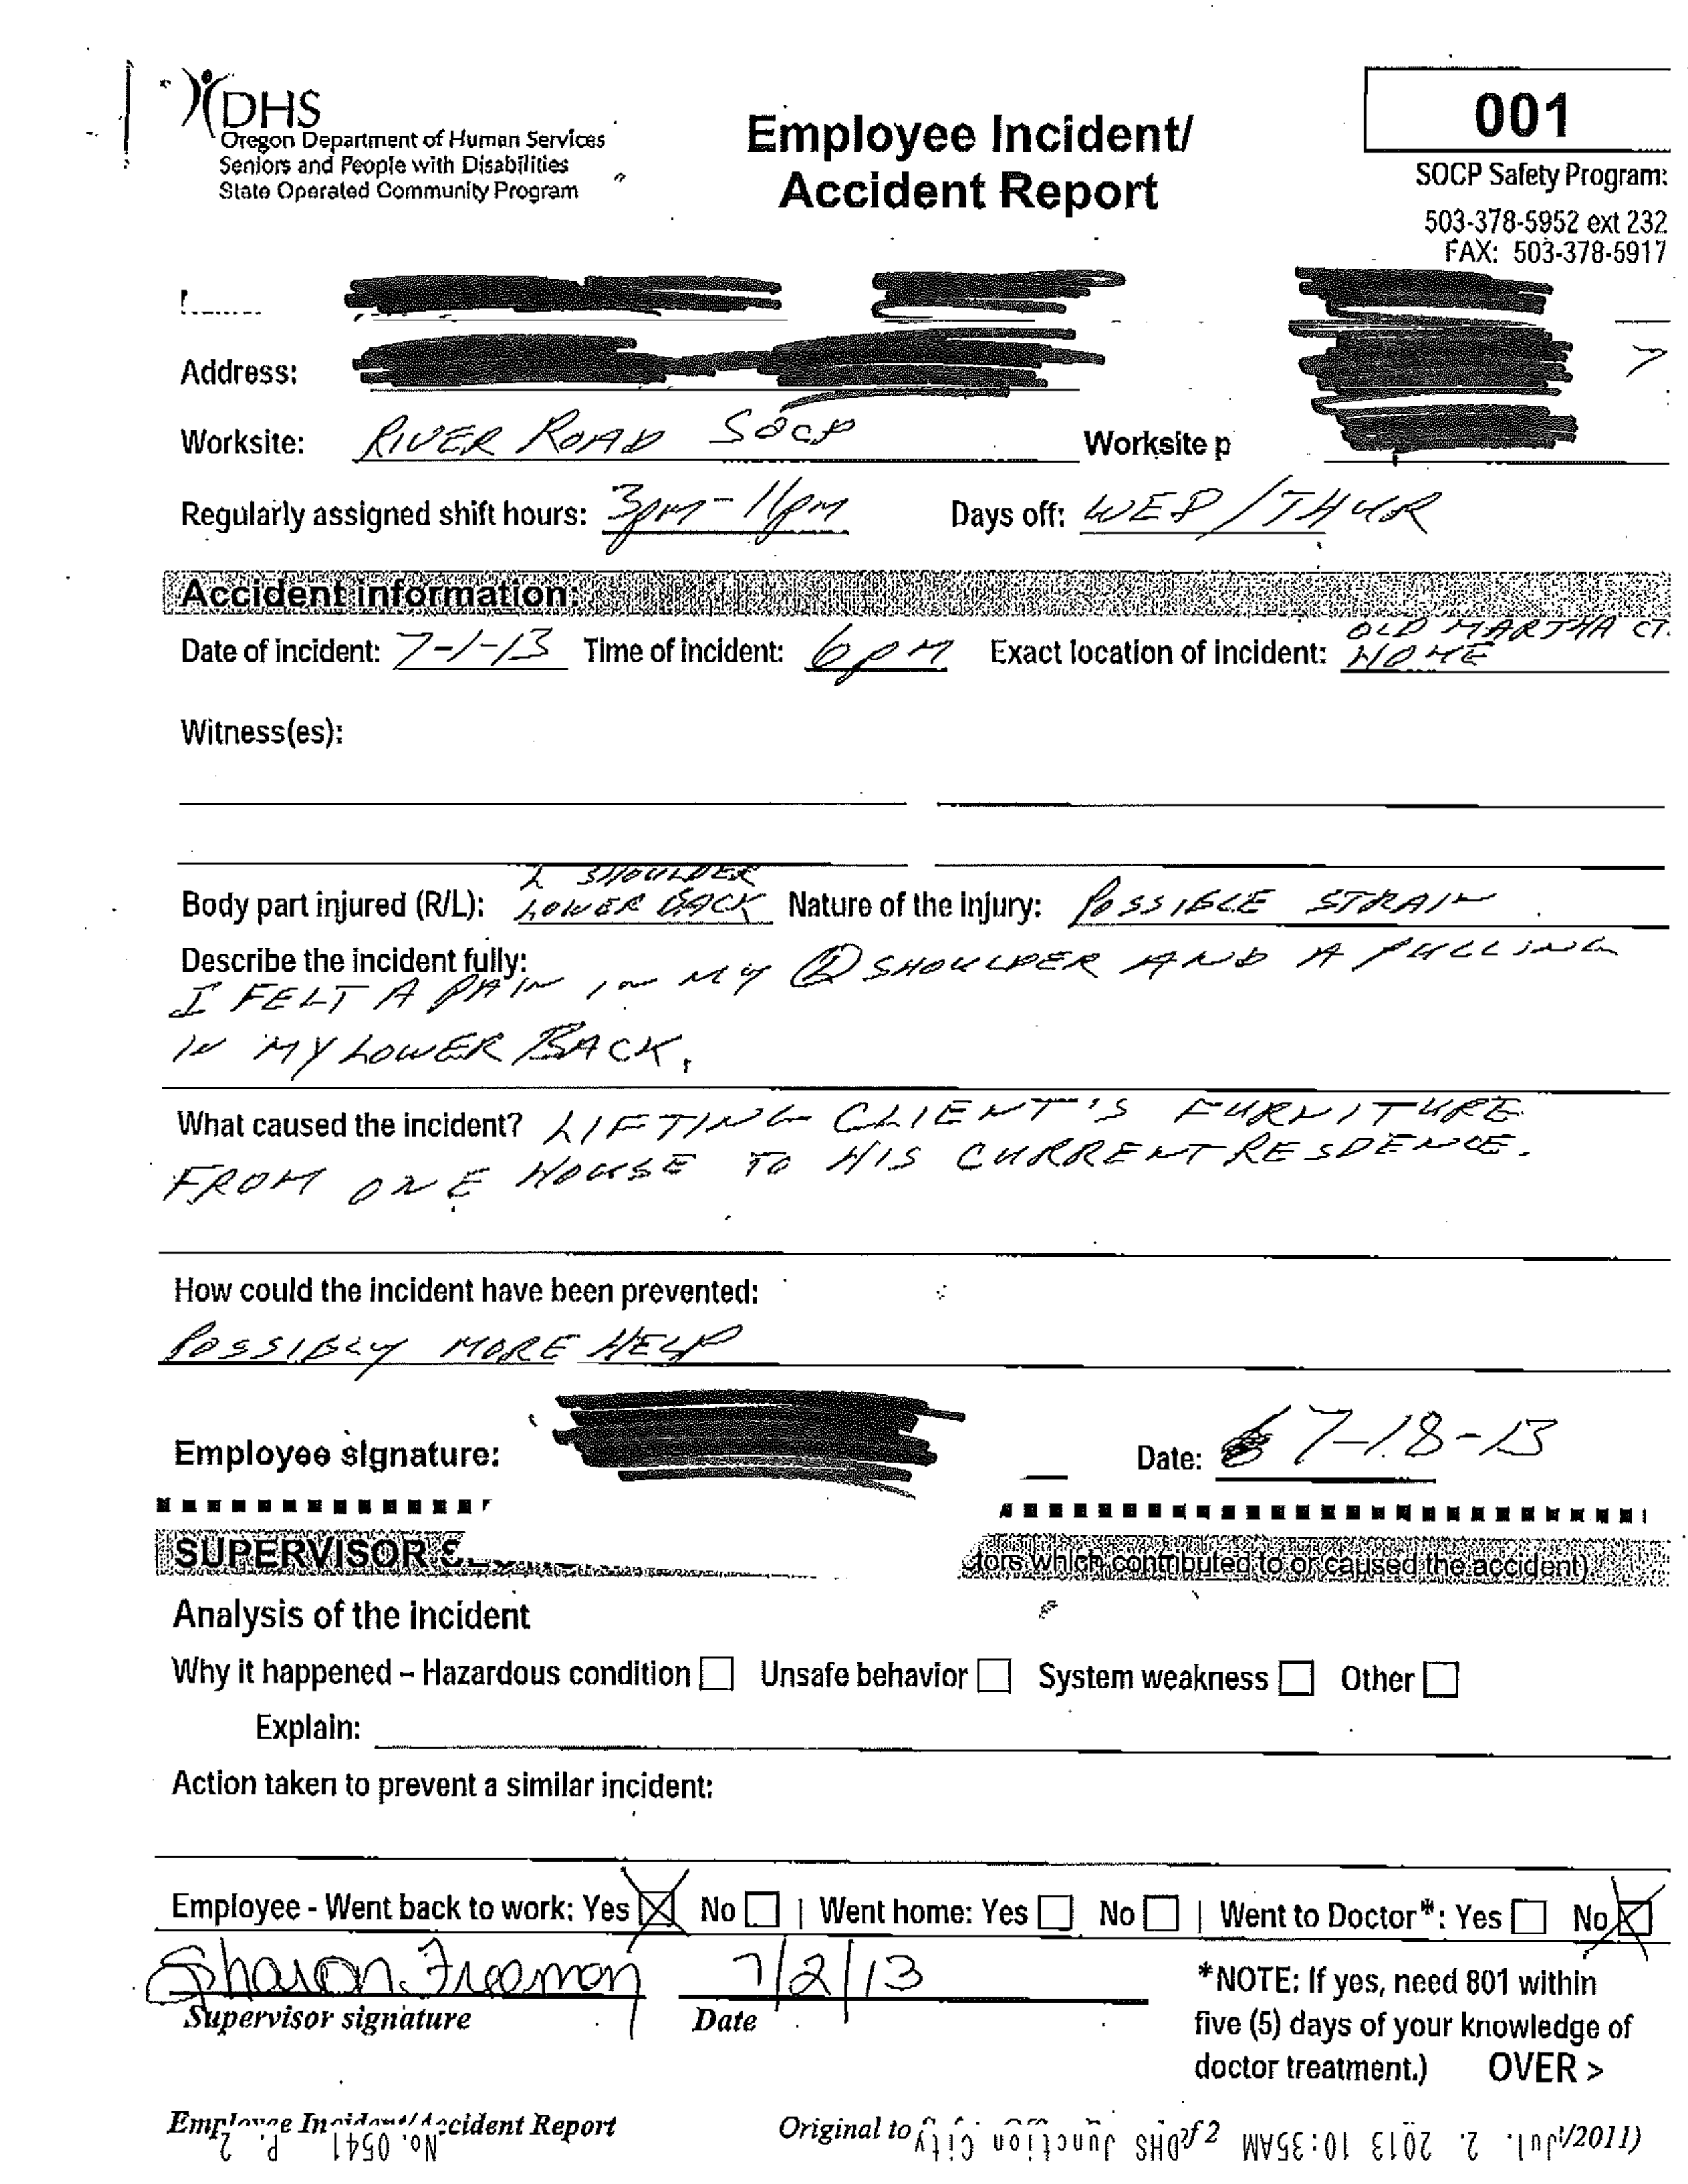 DHS
Oregon Department of Human Services
Seniors and People with Disabilities
State Operated Community Program
Employee Incident/
Accident Report
001
SOCP Safety Program:
503-378-5952 ext 232
FAX: 503-378-5917
Address:
Worksite: RIVER ROAD SOCP Worksite p
Regularly assigned shift hours: 3pm-11pm Days off: WED/THUR
Accident information:
Date of incident: 7-1-13 Time of incident: 6pm Exact location of incident: OLD MARTHA CT.
HOME
Witness(es):
L SHOULDER
Body part injured (R/L): LOWER BACK Nature of the injury: POSSIBLE STRAIN
Describe the incident fully:
I FELT A PAIN IN MY L SHOULDER AND A PULLING
IN MY LOWER BACK.
What caused the incident? LIFTING CLIENT'S FURNITURE
FROM ONE HOUSE TO HIS CURRENT RESDENCE.
How could the incident have been prevented:
POSSIBLY MORE HELP
Employee signature: Date: 7-18-13
SUPERVISOR which contributed to or caused the accident)
Analysis of the incident
Why it happened – Hazardous condition Unsafe behavior System weakness Other
Explain:
Action taken to prevent a similar incident:
Employee - Went back to work: Yes No | Went home: Yes No | Went to Doctor*: Yes No
Sharon Freeman 7/2/13
Supervisor signature Date
*NOTE: If yes, need 801 within
five (5) days of your knowledge of
doctor treatment.) OVER >
Employee Incident/Accident Report Original to of 2 /2011)
Jul. 2. 2013 10:35AM DHS Junction City No. 0541 P. 2